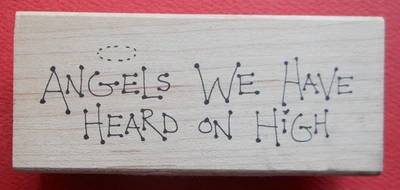 ANGELS WE HAVE
HEARD ON HiGH